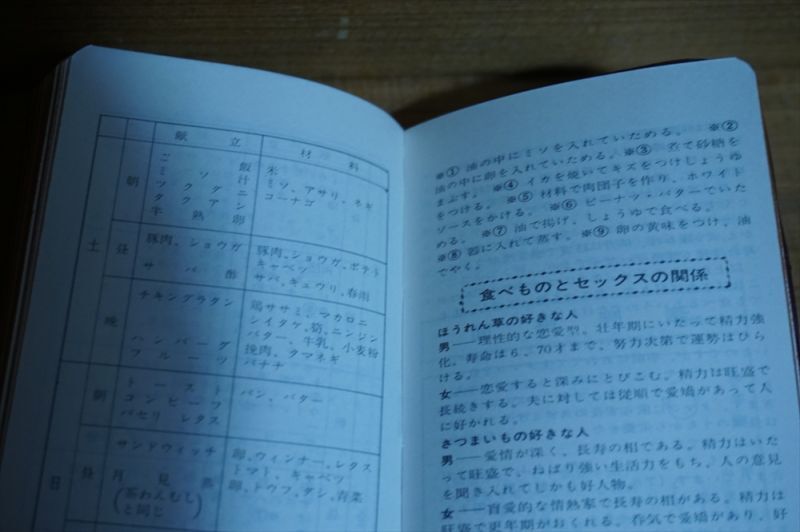 献立 材料
土
朝
ご飯 米
ミソ汁 ミソ、アサリ、ネギ
ツクダニ コーナゴ
タクアン
半熟卵
昼
豚肉、ショウガ 豚肉、ショウガ、ポテト
キャベツ
サバ酢 サバ、キュウリ、春雨
晩
チキングラタン 鶏ササミ、マカロニ
シイタケ、筍、ニンジン
バター、牛乳、小麦粉
ハンバーグ 挽肉、タマネギ
フルーツ バナナ
日
朝
トースト パン、バター
コンビーフ
パセリ レタス
昼
サンドウィッチ 卵、ウィンナー、レタス
トマト、キャベツ
月見蒸 卵、トウフ、ダシ、青菜
(茶わんむし
と同じ)
※① 油の中にミソを入れていためる。 ※②
油の中に卵を入れていためる。※③ 煮て砂糖を
まぶす。 ※④ イカを焼いてキズをつけしょうゆ
をつける。 ※⑤ 材料で肉団子を作り、ホワイト
ソースをかける。 ※⑥ ピーナツ・バターでいた
める。 ※⑦ 油で揚げ、しょうゆで食べる。
※⑧ 器に入れて蒸す。 ※⑨ 卵の黄味をつけ、油
でやく。
食べものとセックスの関係
ほうれん草の好きな人
男──理性的な恋愛型。壮年期にいたって精力強
化、寿命は6、70才まで、努力次第で運勢はひら
ける。
女──恋愛すると深みにとびこむ。精力は旺盛で
長続きする。夫に対しては従順で愛嬌があって人
に好かれる。
さつまいもの好きな人
男──愛情が深く、長寿の相である。精力はいた
って旺盛で、ねばり強い生活力をもち、人の意見
を聞き入れてしかも好人物。
女──盲愛的な情熱家で長寿の相がある。精力は
旺盛で更年期がおくれる。呑気で愛嬌があり、好